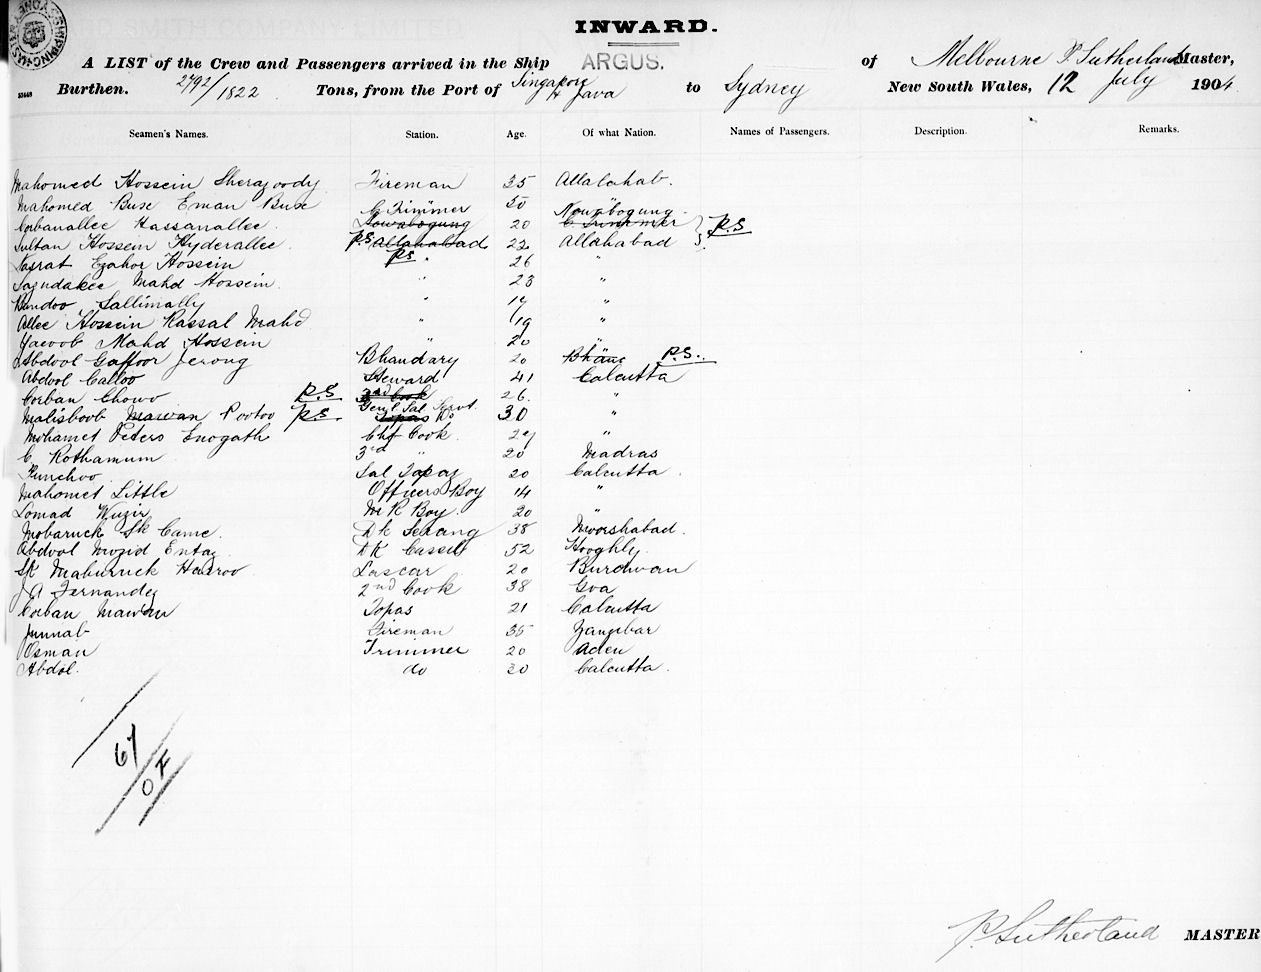 INWARD.
A LIST of the Crew and Passengers arrived in the Ship ARGUS. of Melbourne P. Sutherland Master,
Burthen. 2792/1822 Tons, from the Port of Singapore & Java to Sydney New South Wales, 12 July 1904.
Seamen's Names. Station. Age. Of what Nation. Names of Passengers. Description. Remarks.
Mahomed Hossein Sheragoody Fireman 35 Allalahab.
Mahomed Buse Eman Buse C Trimmer 50 Nowabogung
Corbanallee Kassanallee Nowabogung 20 C. Trimmer P.S
Sultan Hossein Hyderallee P.S Allahabad 22 Allahabad
Nasrat Ezahor Hossein P.S " 26 "
Sazudakee Mahd Hossein " 23 "
Bundoo Sallimally " 19 "
Allee Hossein Rassal Mahd " 19 "
Yacoob Mahd Hossein " 20 "
Abdool Gaffoor Jerong Bhandary 20 P.S.
Abdool Calloo Steward 41 Calcutta
Corban Chowo P.S 3rd Cook 26 "
Malisboob Mawan Pootoo P.S Genl Sal Servt. Topas Do 30
Mohamet Peters Enogath Chf Cook 29 "
C Kothamum 3rd " 20 Madras
Funchoo Sal Topaz 20 Calcutta
Mahomet Little Officers Boy 14 "
Lomad Wuzir M R Boy 20 "
Mobaruck Sk Came Dk Serang 38 Moorshabad
Abdool Mozid Entaz DK Cassell 52 Hooghly
SK Maburuck Hadroo Lascar 20 Burdwan
J A Fernandez 2nd Cook 38 Goa
Corban Mawan Topas 21 Calcutta
Jumnab Fireman 35 Zanzibar
Osman Trimmer 20 Aden
Abdol do 30 Calcutta
67
OF
P. Sutherland MASTER